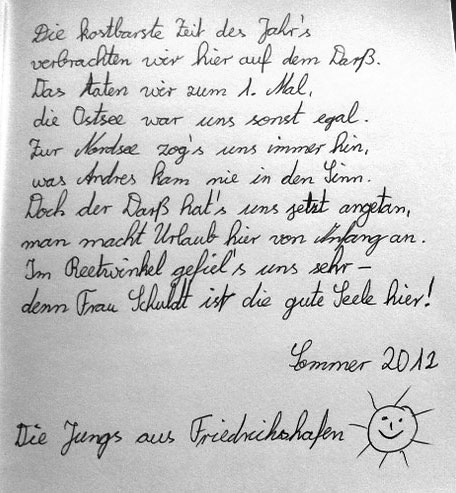 Die kostbarste Zeit des Jahr's
verbrachten wir hier auf dem Darß.
Das taten wir zum 1. Mal,
die Ostsee war uns sonst egal.
Zur Nordsee zog's uns immer hin,
was Andres kam nie in den Sinn.
Doch der Darß hat's uns jetzt angetan,
man macht Urlaub hier von Anfang an.
Im Reetwinkel gefiel's uns sehr –
denn Frau Schuldt ist die gute Seele hier!
Sommer 2012
Die Jungs aus Friedrichshafen